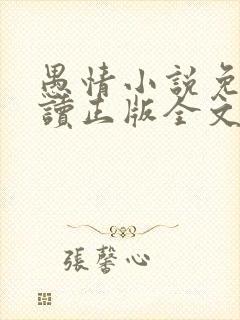 愚情小説免
讀正版全文
張馨心